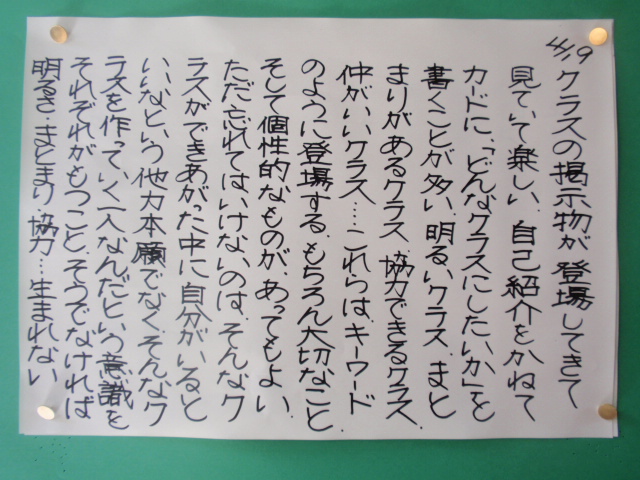 4/19 クラスの掲示物が登場してきて
見ていて楽しい、自己紹介をかねて
カードに、「どんなクラスにしたいか」を
書くことが多い、明るいクラス、まと
まりがあるクラス、協力できるクラス、
仲がいいクラス…これらは、キーワード
のように登場する、もちろん大切なこと、
そして個性的なものが、あってもよい、
ただ忘れてはいけないのは、そんなク
ラスができあがった中に自分がいると
いいなという他力本願でなく、そんなク
ラスを作っていく一人なんだという意識を
それぞれがもつこと、そうでなければ
明るさ・まとまり・協力…生まれない